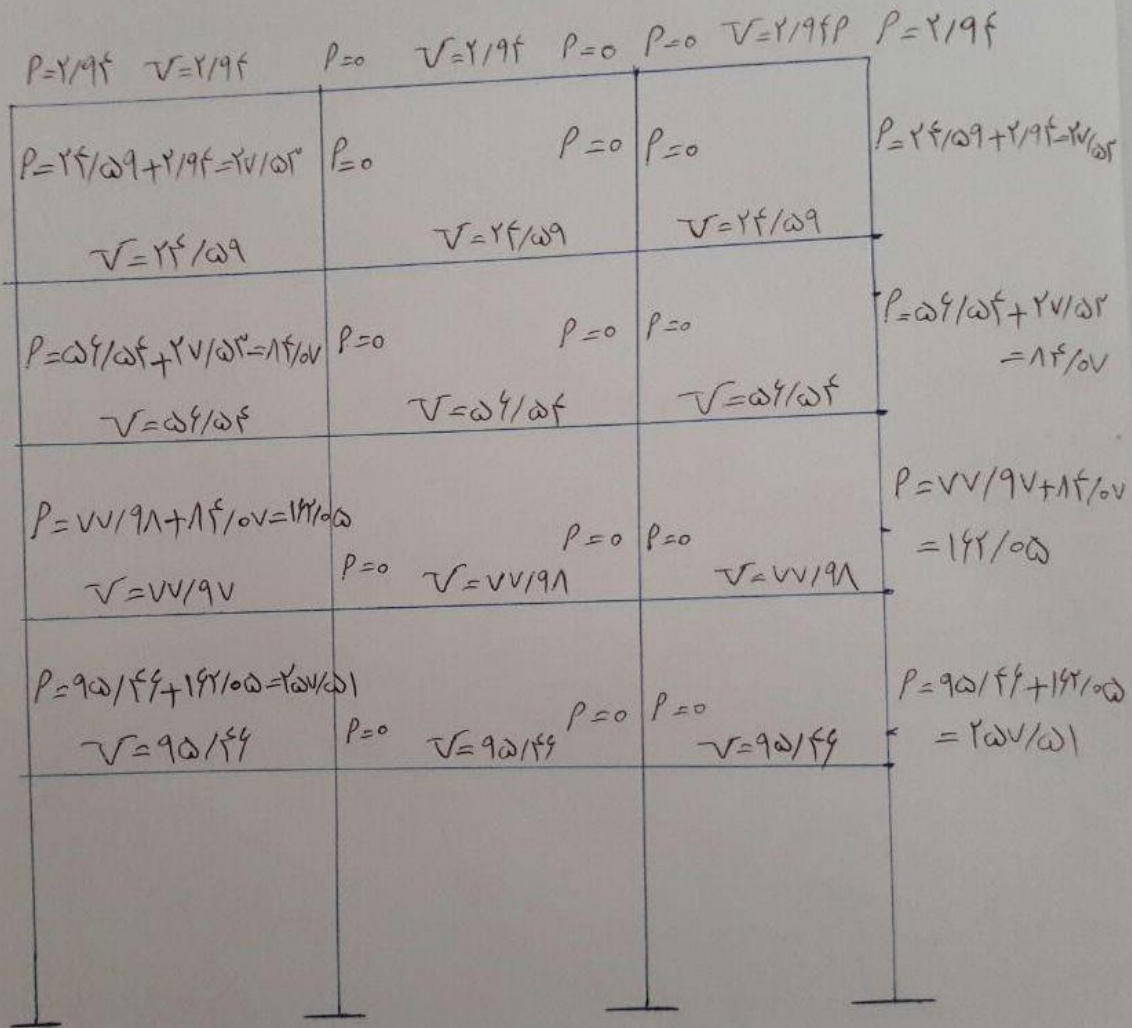 P=۲/۹۴ V=۲/۹۴ P=۰ V=۲/۹۴ P=۰ P=۰ V=۲/۹۴P P=۲/۹۴
P=۲۴/۵۹+۲/۹۴=۲۷/۵۳ P=۰ P=۰ P=۰ P=۲۴/۵۹+۲/۹۴=۲۷/۵۳
V=۲۴/۵۹ V=۲۴/۵۹ V=۲۴/۵۹
P=۵۶/۵۴+۲۷/۵۳=۸۴/۰۷ P=۰ P=۰ P=۰ P=۵۶/۵۴+۲۷/۵۳
=۸۴/۰۷
V=۵۶/۵۴ V=۵۶/۵۴ V=۵۶/۵۴
P=۷۷/۹۸+۸۴/۰۷=۱۶۲/۰۵ P=۰ P=۰ P=۰ P=۷۷/۹۷+۸۴/۰۷
=۱۶۲/۰۵
V=۷۷/۹۷ V=۷۷/۹۸ V=۷۷/۹۸
P=۹۵/۴۶+۱۶۲/۰۵=۲۵۷/۵۱ P=۰ P=۰ P=۰ P=۹۵/۴۶+۱۶۲/۰۵
=۲۵۷/۵۱
V=۹۵/۴۶ V=۹۵/۴۶ V=۹۵/۴۶